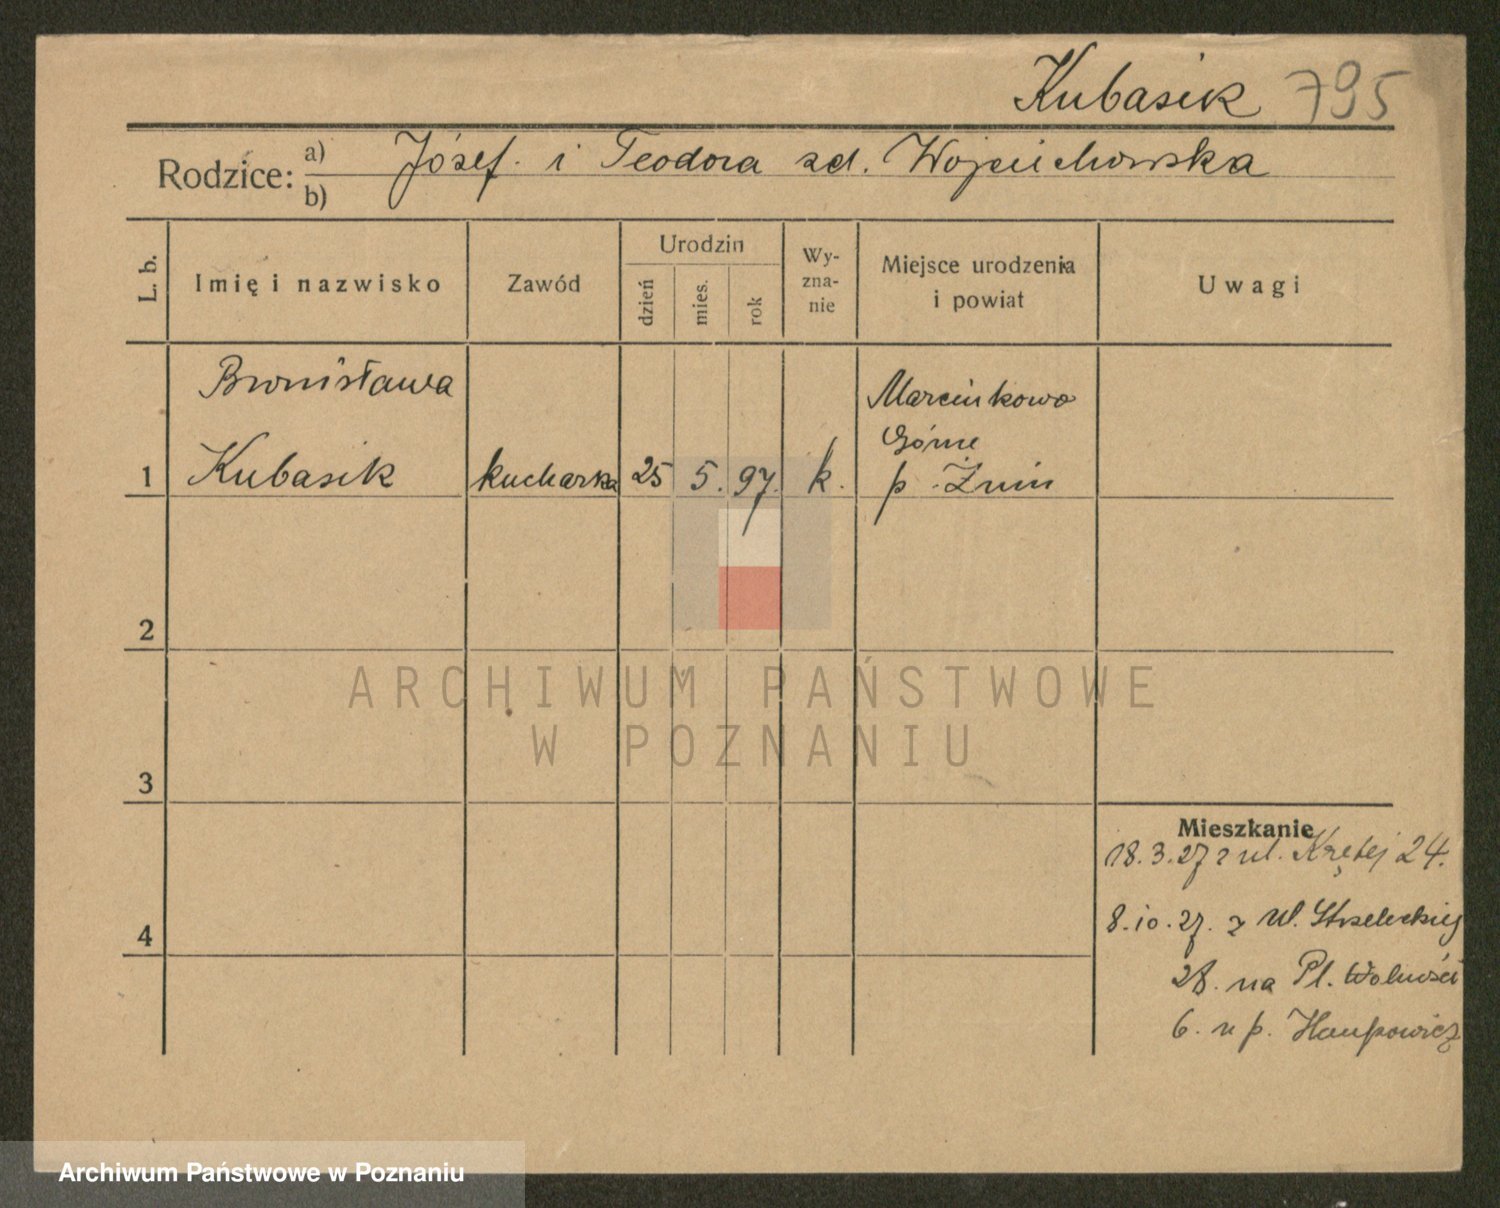 Kubasik 795
Rodzice: a) Józef i Teodora zd. Wojciechowska
b)
L. b.
Imię i nazwisko
Zawód
Urodzin
dzień
mies.
rok
Wy-
zna-
nie
Miejsce urodzenia
i powiat
Uwagi
Bronisława
Marcinkowo
Górne
1 Kubasik kucharka 25 5. 97. k. p. Żnin
2
ARCHIWUM PAŃSTWOWE
W POZNANIU
3
Mieszkanie
18.3.27 z ul. Krętej 24.
8.10.27. z ul. Strzeleckiej
4
28. na Pl. Wolności
6. u p.
Archiwum Państwowe w Poznaniu